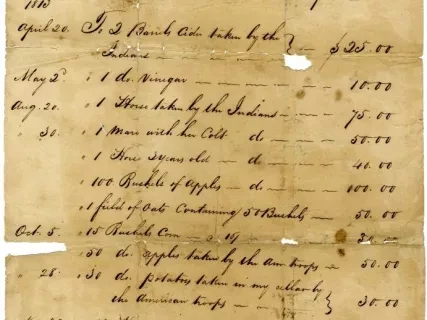 1813
April 20. To 2 Barrels Cider taken by the
Indians — — $25.00
May 2d " 1 do. Vinegar — — — — 10.00
Aug. 20. " 1 Horse taken by the Indians — 75.00
" 30. " 1 Mare with her Colt do — 50.00
" 1 Horse 3 years old — do — 40.00
" 100 Bushels of Apples — do — 100.00
" 1 field of Oats Containing 50 Bushels — 50.00
Oct. 5. " 15 Bushels Corn 30.00
" 50 do. apples taken by the Am troops — 50.00
" 28. " 30 do. potatoes taken in my cellar by
the American troops — — 30.00